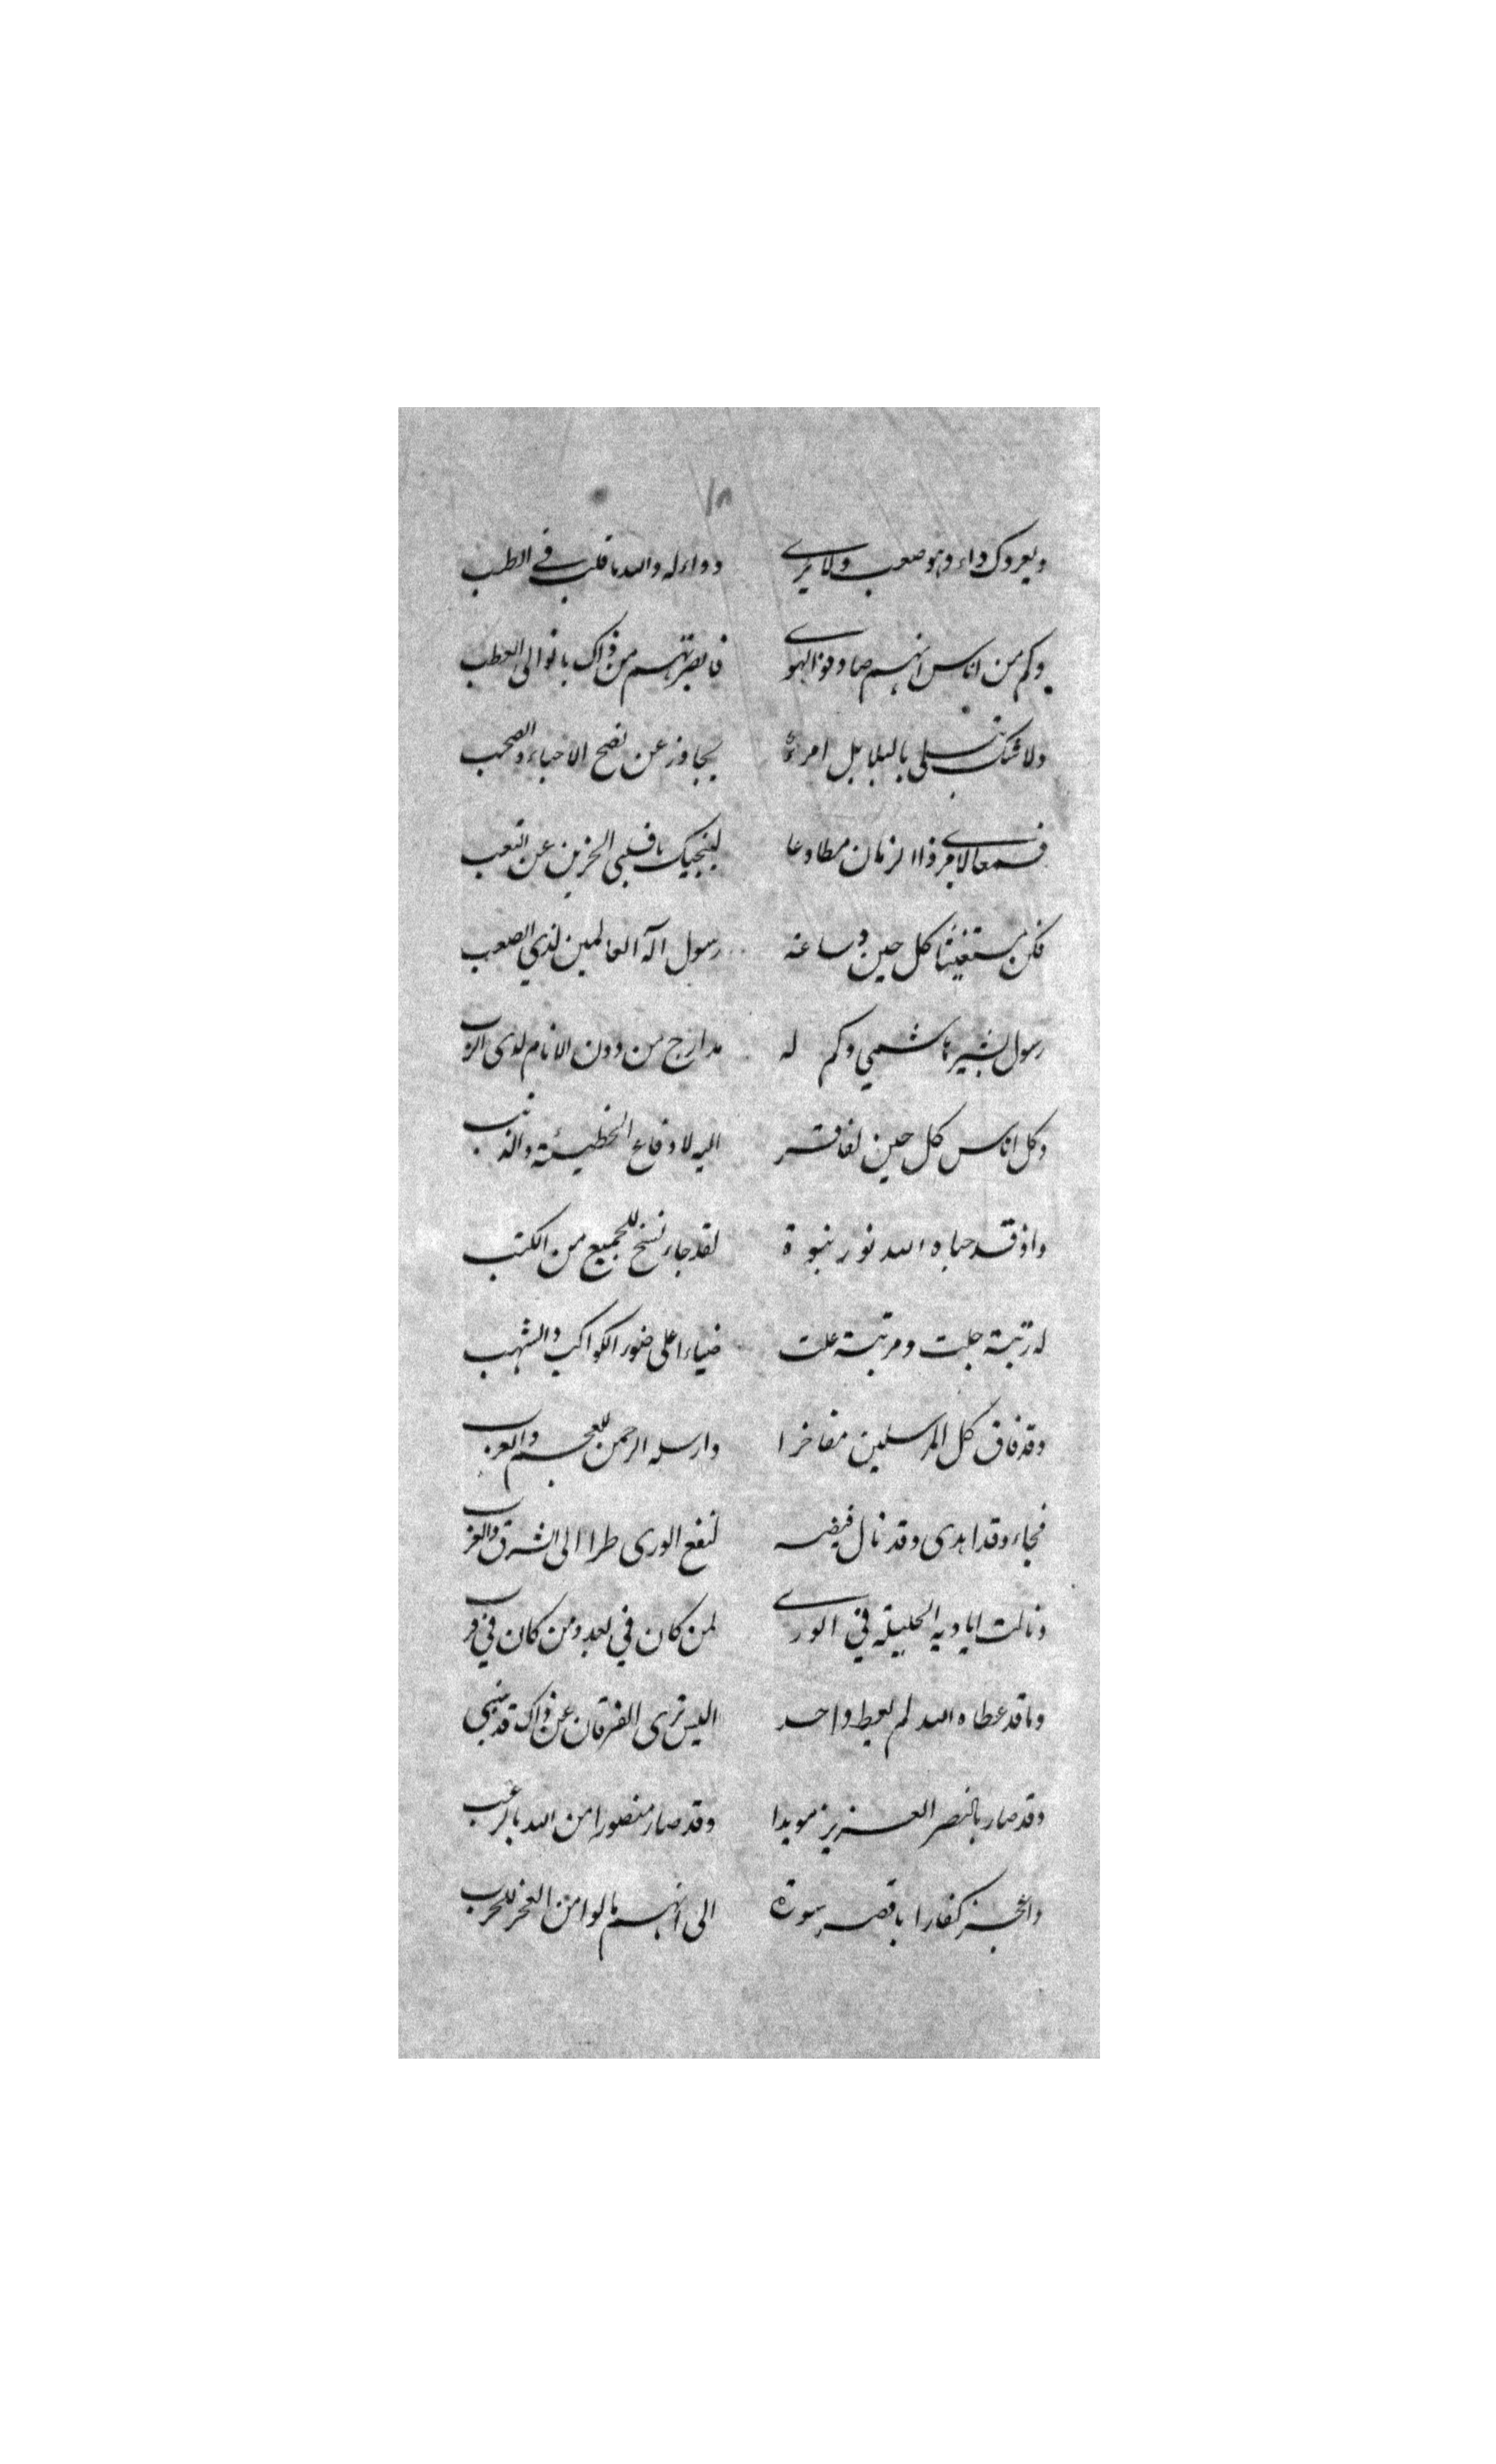 ١٨
ويعروك داء وهو صعب ولا يرى دواء له والله يا قلب في الطب
وكم من اناس انهم صادفوا الهوى فابصرتهم من ذاك بانوا الى العطب
ولا شك يبتلى بالبلابل امرء يجاوز عن نصح الاحباء والصحب
فسمعا لامري ذا الزمان مطاوعا لينجيك يا قلبي الحزين عن التعب
فكن مستغيثا كل حين وساعة رسول اله العالمين لذي الصعب
رسول بشير هاشمي وكم له مدارج من دون الانام لدى الرب
وكل اناس كل حين لفاقر اليه لادفاع الخطيئة والذنب
واذ قد حباه الله نور نبوة لقد جاء نسخ للجميع من الكتب
له رتبة جلت ومرتبة علت ضياء اعلى ضوء الكواكب والشهب
وقد فاق كل المرسلين مفاخرا وارسله الرحمن للعجم والعرب
فجاء وقد اهدى وقد نال فيضه لنفع الورى طرا الى الشرق والغرب
ونالت اياديه الجليلة في الورى لمن كان في بعد ومن كان في قر
وما قد عطاه الله لم يعط واحد اليس ترى الفرقان عن ذاك قد ينبى
وقد صار بالنصر العزيز مويدا وقد صار منصورا من الله بالرعب
واعجز كفارا باقصر سورة الى انهم مالوا من العجز للحرب